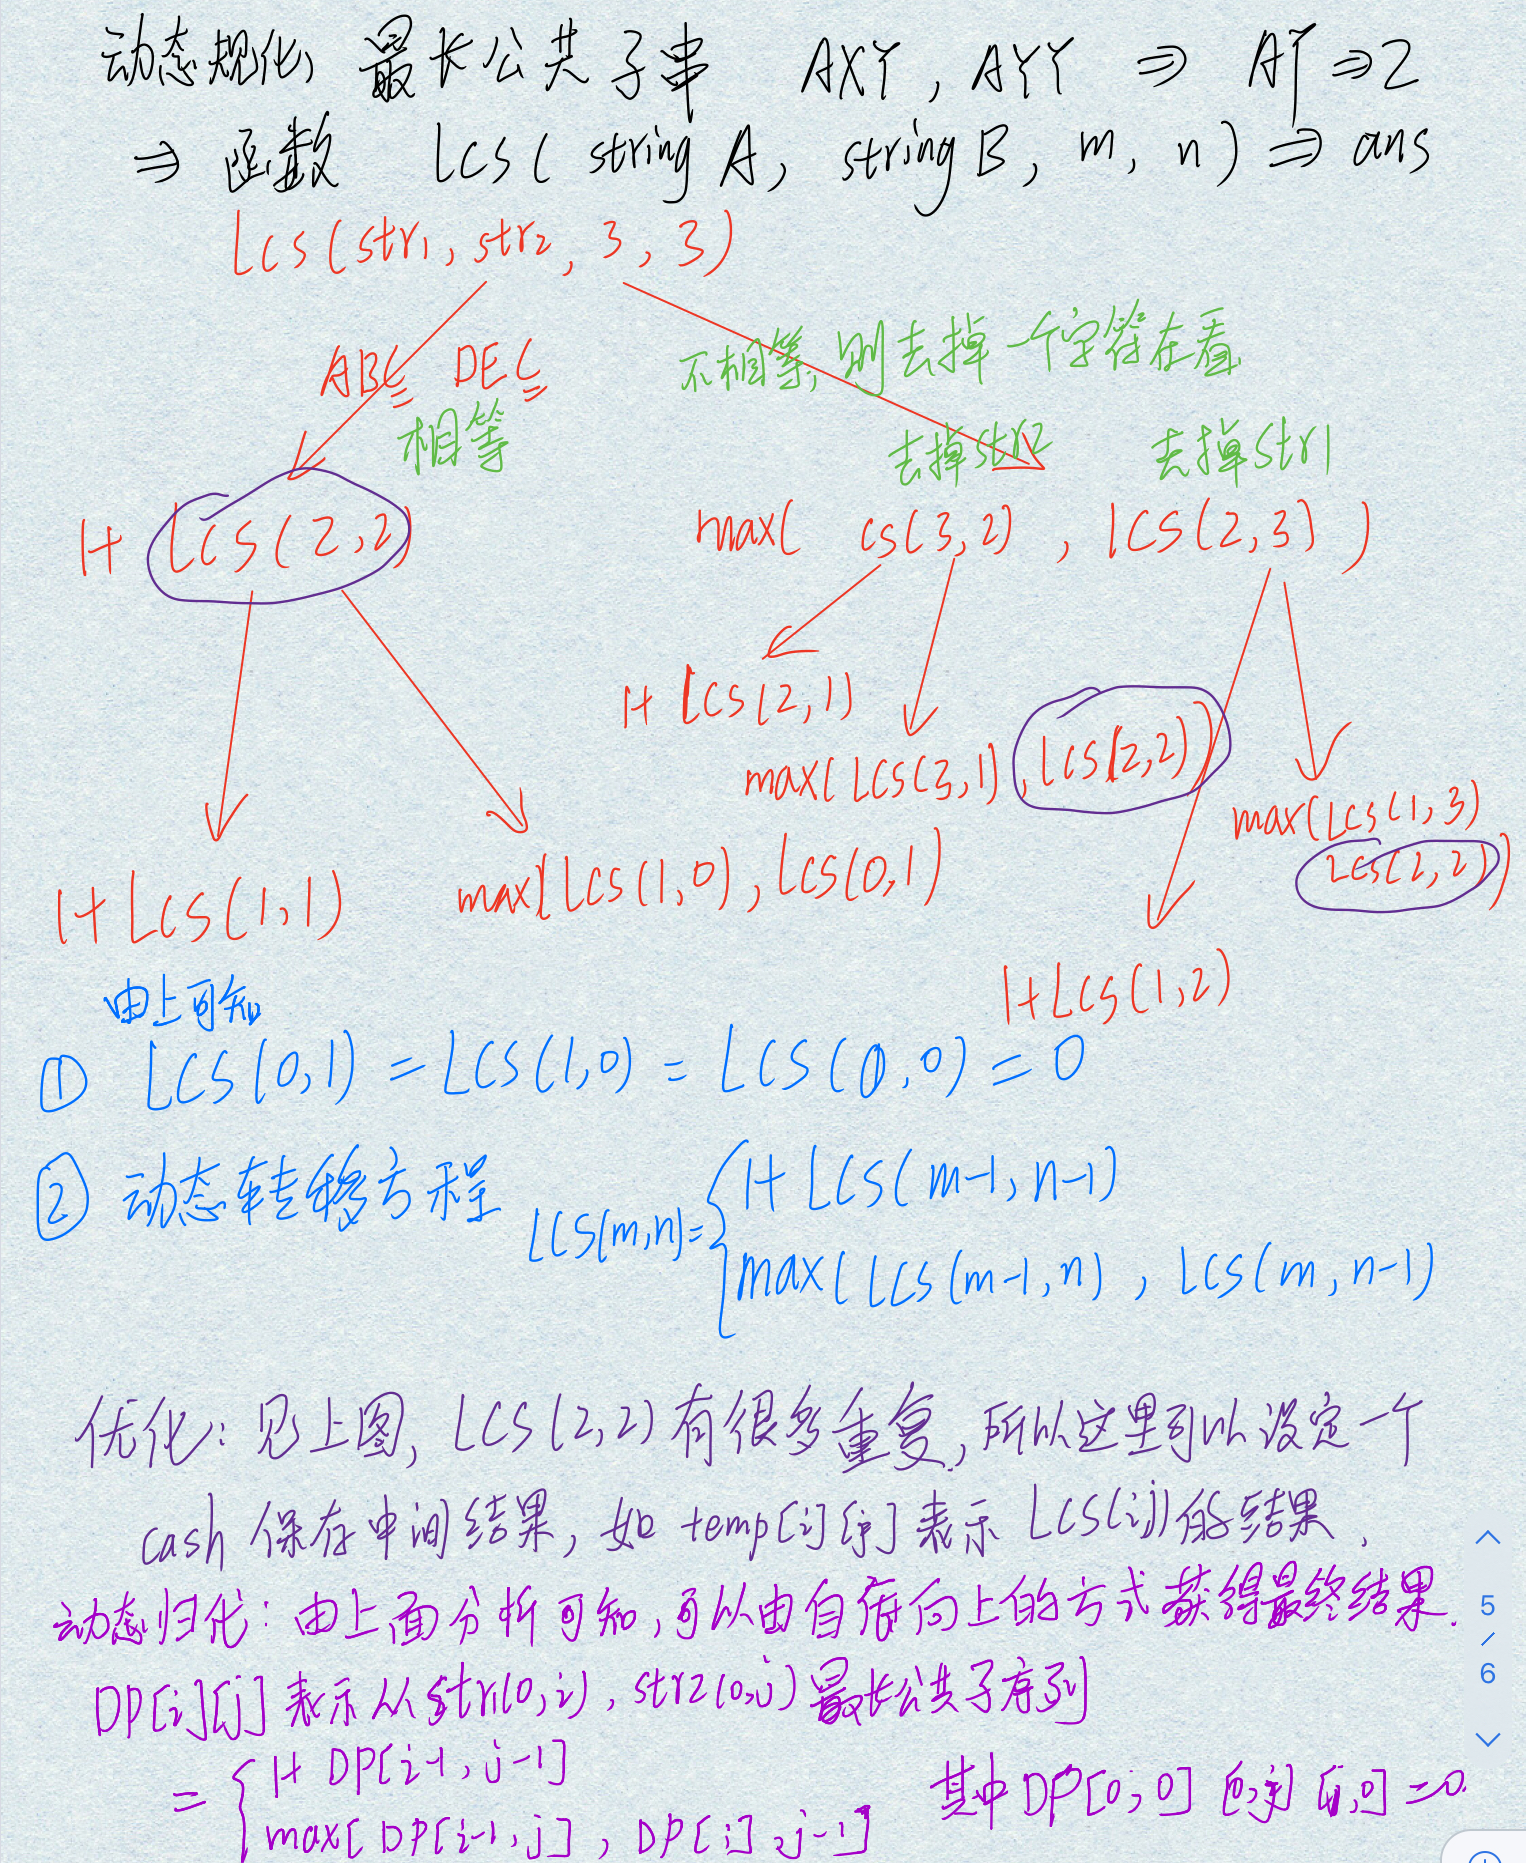 动态规化, 最长公共子串 AXY, AYY ⇒ AY ⇒ 2
⇒ 函数 LCS( string A, string B, m, n) ⇒ ans
LCS(str1, str2, 3, 3)
ABC DEC
相等
不相等, 则去掉一个字符在看
去掉str2 去掉str1
1+ LCS(2,2)
max( CS(3,2) , LCS(2,3) )
1+ LCS(2,1)
max(LCS(3,1), LCS(2,2))
max(LCS(1,3)
LCS(2,2))
1+LCS(1,1)
max(LCS(1,0), LCS(0,1)
1+LCS(1,2)
由上可知
① LCS(0,1) = LCS(1,0) = LCS(0,0) = 0
② 动态转移方程 LCS(m,n)= { 1+ LCS(m-1, n-1)
max(LCS(m-1,n), LCS(m,n-1)
优化: 见上图, LCS(2,2)有很多重复, 所以这里可以设定一个
cash 保存中间结果, 如 temp[i][j] 表示 LCS(i,j)的结果,
动态归化: 由上面分析可知, 可以由自底向上的方式获得最终结果.
DP[i][j] 表示从str1(0,i), str2(0,j)最长公共子序列
= { 1+ DP[i-1, j-1]
max[DP[i-1, j], DP[i], j-1]
其中DP[0,0] [0,j] [i,0] = 0.
5
/
6